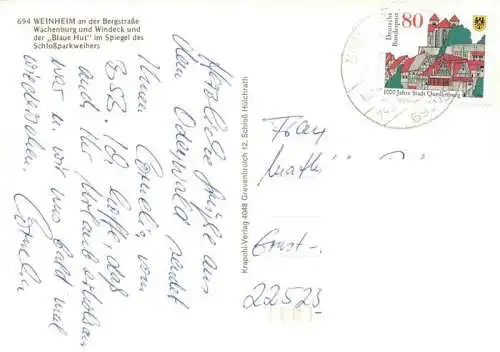 694 WEINHEIM an der Bergstraße
Wachenburg und Windeck und
der „Blaue Hut" im Spiegel des
Schloßparkweihers
Herzliche Grüße aus
dem Odenwald sendet
Ihnen Cornelia vom
BSB. Ich hoffe, daß
auch Ihr Urlaub erholsam
war u. wir uns bald mal
wiedersehen. Cornelia
Krapohl-Verlag 4048 Grevenbroich 12, Schloß Hülchrath
80
Deutsche
Bundespost
1000 Jahre Stadt Quedlinburg
Frau
Ernst-
22523